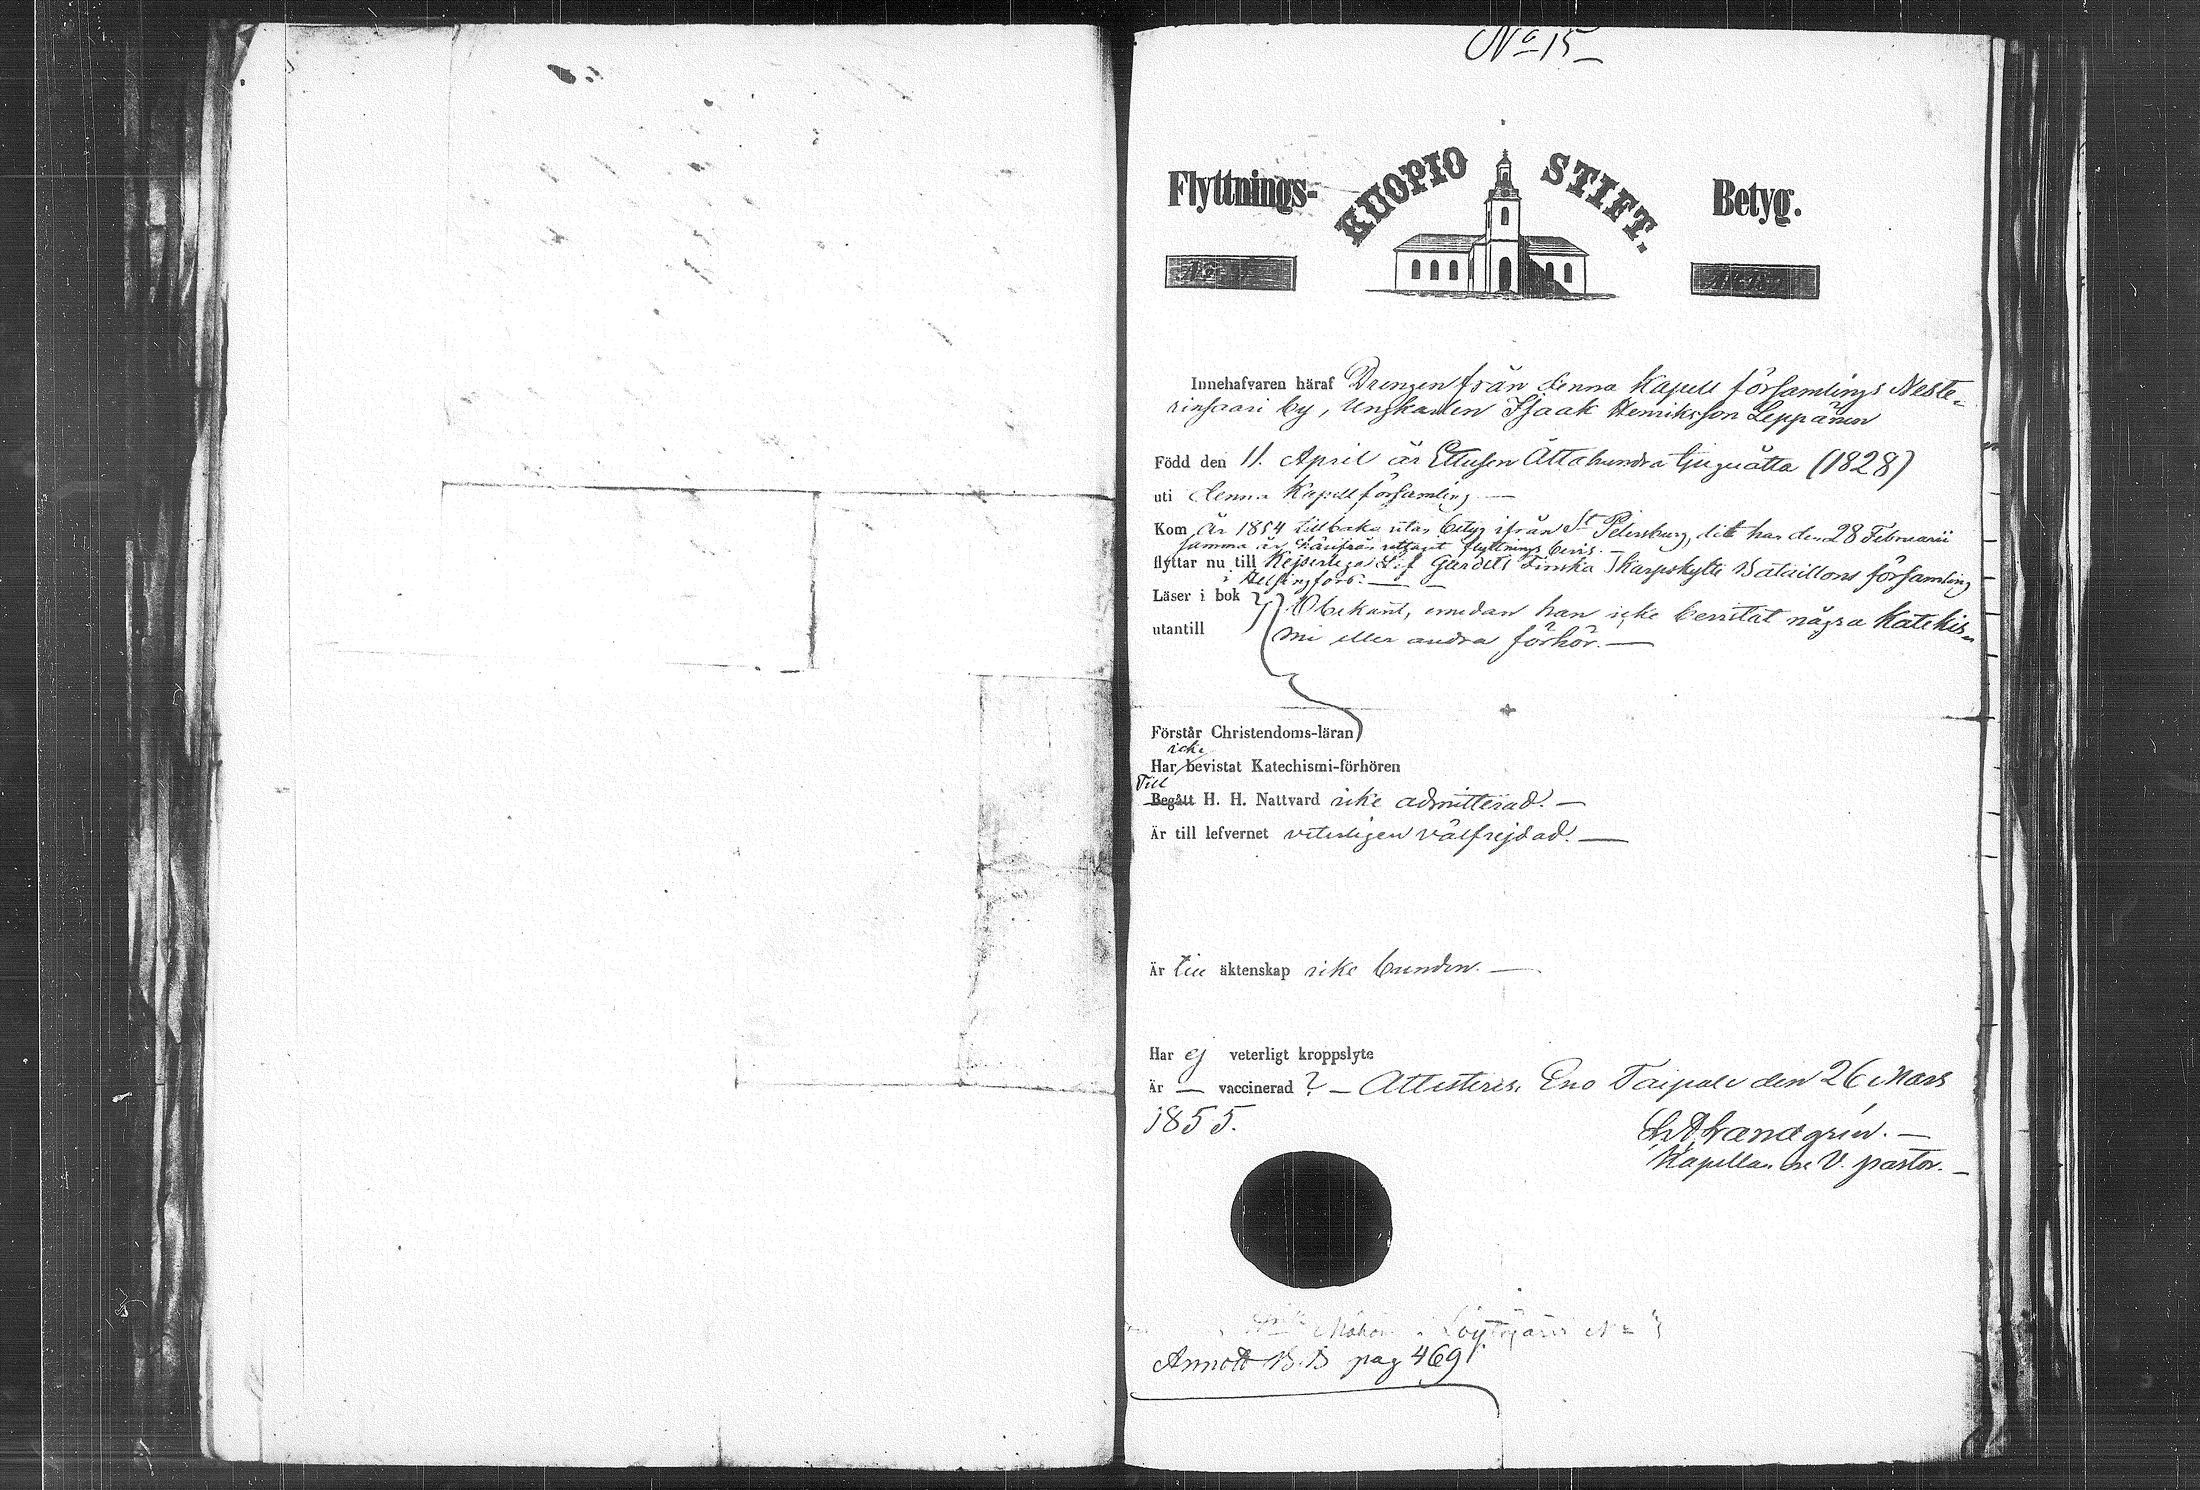 No 15
Flyttnings- KUOPIO STIFT. Betyg.
Innehafvaren häraf Drengen från denna Kapell församlings Neste-
rinsaari by, Ungkarlen Isaak Henriksson Leppänen
Född den 11. April år Ettusen Åttahundra tjuguåtta (1828)
uti denna Kapellförsamling —
Kom År 1854 tillbaka utan betyg ifrån St Petersburg, dit han den 28 Februarii
samma år härifrån uttagit flyttnings bevis. —
flyttar nu till Kejserliga Lif Gardets Finska Skarpskytte Bataillons församling
i Helsingfors. —
Läser i bok } Obekant, emedan han icke bevistat några Katekis-
utantill mi eller andra förhör. —
Förstår Christendoms-läran
icke
Har bevistat Katechismi-förhören
Till
Begått H. H. Nattvard icke admitterad. —
Är till lefvernet veterligen välfrejdad. —
Är till äktenskap icke bunden. —
Har ej veterligt kroppslyte
Är — vaccinerad ? — Attesteras. Eno Taipale den 26 Mars
1855.
Landgrén. —
Kapellan och V. pastor. —
Annott B.B pag 469